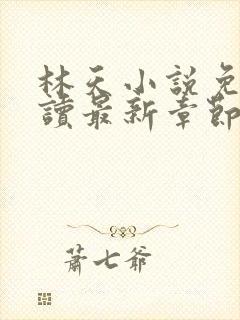 林天小說免
讀最新章節
蕭七爺